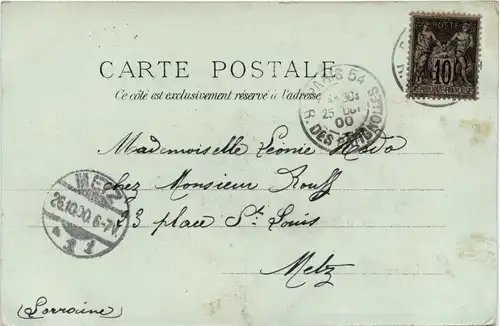 POSTE
10
RÉPUBLIQUE FRANÇAISE
CARTE POSTALE
Ce côté est exclusivement réservé à l'adresse
PARIS 54
25 OCT
00
R. DES BATIGNOLLES
Mademoiselle Léonie
chez Monsieur Rouff
METZ
26.10.00.6-7
23 place St. Louis
Metz
(Lorraine)